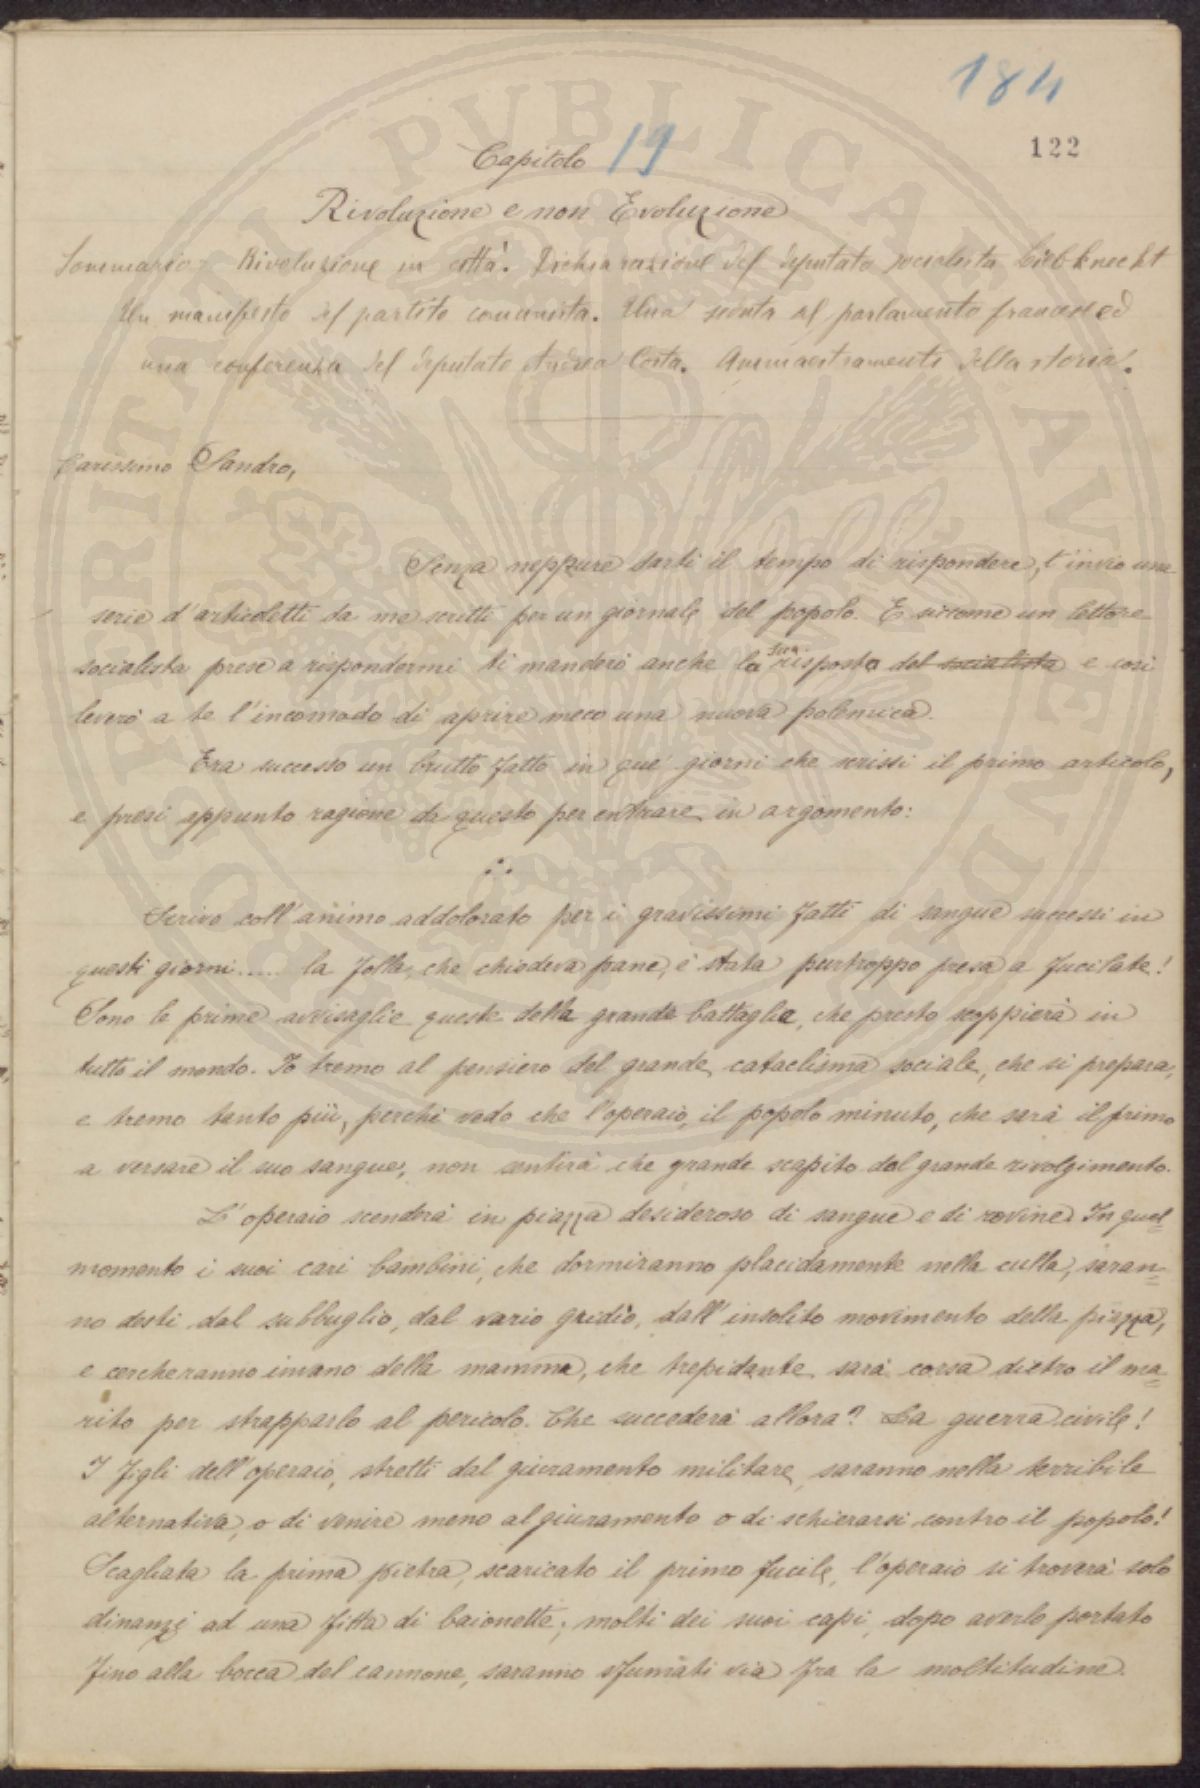 184
122
Capitolo 19
Rivoluzione e non Evoluzione
Sommario: Rivoluzione in città. Dichiarazione del deputato socialista Liebknecht
Un manifesto del partito comunista. Una seduta al parlamento francese ed
una conferenza del deputato Andrea Costa. Ammaestramenti della storia.
Carissimo Sandro,
Senza neppure darti il tempo di rispondere, t'invio una
serie d'articoletti da me scritti per un giornale del popolo. E siccome un lettore
socialista prese a rispondermi ti manderò anche la sua risposta del socialista e così
leverò a te l'incomodo di aprire meco una nuova polemica.
Era successo un brutto fatto in que' giorni che scrissi il primo articolo,
e presi appunto ragione da questo per entrare in argomento:
Scrivo coll'animo addolorato per i gravissimi fatti di sangue successi in
questi giorni..... la folla, che chiedeva pane, è stata purtroppo presa a fucilate!
Sono le prime avvisaglie queste della grande battaglia, che presto scoppierà in
tutto il mondo. Io tremo al pensiero del grande cataclisma sociale, che si prepara,
e tremo tanto più, perchè vedo che l'operaio, il popolo minuto, che sarà il primo
a versare il suo sangue, non sentirà che grande scapito dal grande rivolgimento.
L'operaio scenderà in piazza desideroso di sangue e di rovine. In quel
momento i suoi cari bambini, che dormiranno placidamente nella culla, saran=
no desti dal subbuglio, dal vario gridìo, dall'insolito movimento della piazza,
e cercheranno invano della mamma, che trepidante sarà corsa dietro il ma=
rito per strapparlo al pericolo. Che succederà allora? La guerra civile!
I figli dell'operaio, stretti dal giuramento militare, saranno nella terribile
alternativa, o di venire meno al giuramento o di schierarsi contro il popolo!
Scagliata la prima pietra, scaricato il primo fucile, l'operaio si troverà solo
dinanzi ad una fitta di baionette; molti dei suoi capi, dopo averlo portato
fino alla bocca del cannone, saranno sfumati via fra la moltitudine.